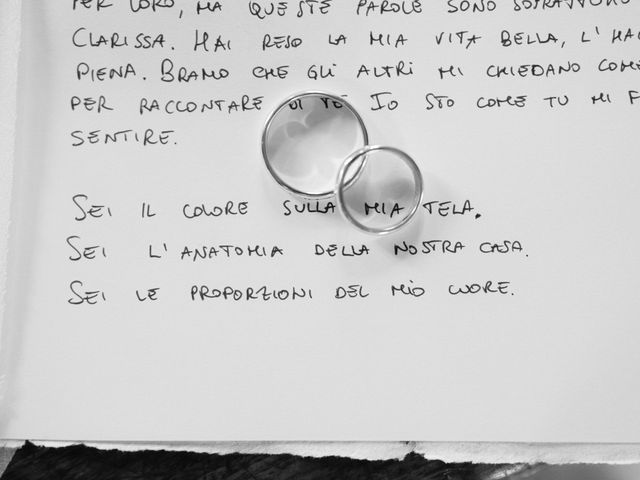 PER LORO, MA QUESTE PAROLE SONO SOPRATTUTTO
CLARISSA. HAI RESO LA MIA VITA BELLA, L'HAI
PIENA. BRAMO CHE GLI ALTRI MI CHIEDANO COME
PER RACCONTARE DI TE IO STO COME TU MI F
SENTIRE.
SEI IL COLORE SULLA MIA TELA.
SEI L'ANATOMIA DELLA NOSTRA CASA.
SEI LE PROPORZIONI DEL MIO CUORE.